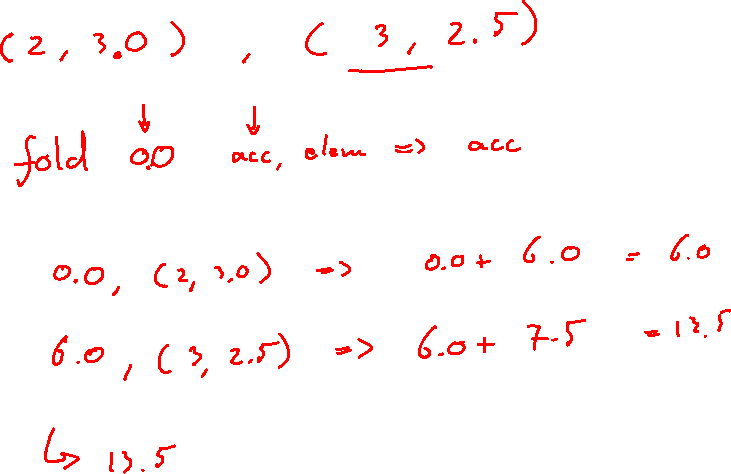 (2, 3.0) , (3, 2.5)
fold 0.0 acc, elem => acc
0.0, (2, 3.0) => 0.0 + 6.0 = 6.0
6.0, (3, 2.5) => 6.0 + 7.5 = 13.5
↳ 13.5